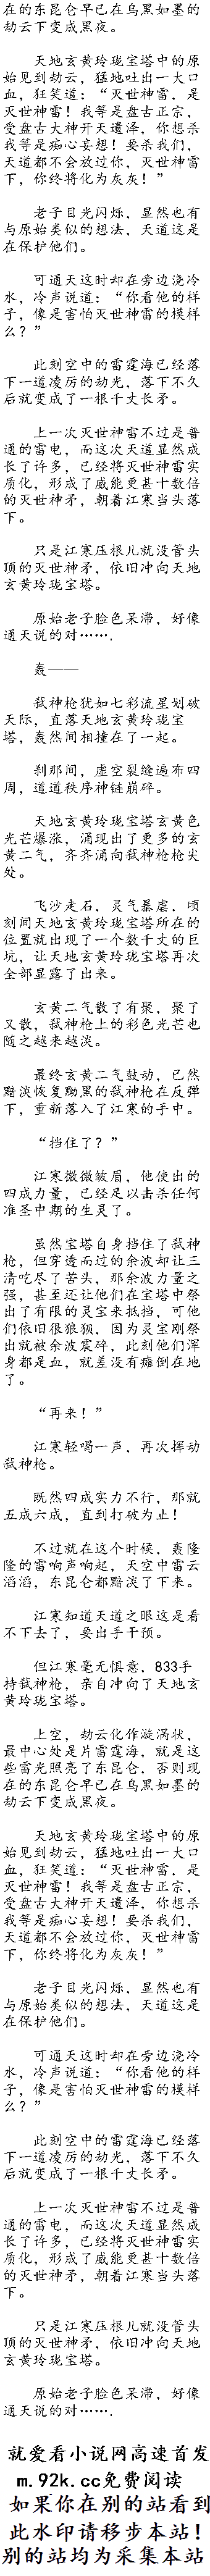 在的东昆仑早已在乌黑如墨的
劫云下变成黑夜。
天地玄黄玲珑宝塔中的原
始见到劫云，猛地吐出一大口
血，狂笑道：“灭世神雷，是
灭世神雷！我等是盘古正宗，
受盘古大神开天遗泽，你想杀
我等是痴心妄想！要杀我们，
天道都不会放过你，灭世神雷
下，你终将化为灰灰！”
老子目光闪烁，显然也有
与原始类似的想法，天道这是
在保护他们。
可通天这时却在旁边浇冷
水，冷声说道：“你看他的样
子，像是害怕灭世神雷的模样
么？”
此刻空中的雷霆海已经落
下一道凌厉的劫光，落下不久
后就变成了一根千丈长矛。
上一次灭世神雷不过是普
通的雷电，而这次天道显然成
长了许多，已经将灭世神雷实
质化，形成了威能更甚十数倍
的灭世神矛，朝着江寒当头落
下。
只是江寒压根儿就没管头
顶的灭世神矛，依旧冲向天地
玄黄玲珑宝塔。
原始老子脸色呆滞，好像
通天说的对…….
轰——
弑神枪犹如七彩流星划破
天际，直落天地玄黄玲珑宝
塔，轰然间相撞在了一起。
刹那间，虚空裂缝遍布四
周，道道秩序神链崩碎。
天地玄黄玲珑宝塔玄黄色
光芒爆涨，涌现出了更多的玄
黄二气，齐齐涌向弑神枪枪尖
处。
飞沙走石，灵气暴虐，顷
刻间天地玄黄玲珑宝塔所在的
位置就出现了一个数千丈的巨
坑，让天地玄黄玲珑宝塔再次
全部显露了出来。
玄黄二气散了有聚，聚了
又散，弑神枪上的彩色光芒也
随之越来越淡。
最终玄黄二气鼓动，已然
黯淡恢复黝黑的弑神枪在反弹
下，重新落入了江寒的手中。
“挡住了？”
江寒微微皱眉，他使出的
四成力量，已经足以击杀任何
准圣中期的生灵了。
虽然宝塔自身挡住了弑神
枪，但穿透而过的余波却让三
清吃尽了苦头，那余波力量之
强，甚至还让他们在宝塔中祭
出了有限的灵宝来抵挡，可他
们依旧很狼狈，因为灵宝刚祭
出就被余波震碎，此刻他们浑
身都是血，就差没有瘫倒在地
了。
“再来！”
江寒轻喝一声，再次挥动
弑神枪。
既然四成实力不行，那就
五成六成，直到打破为止！
不过就在这个时候，轰隆
隆的雷响声响起，天空中雷云
滔滔，东昆仑都黯淡了下来。
江寒知道天道之眼这是看
不下去了，要出手干预。
但江寒毫无惧意，833手
持弑神枪，亲自冲向了天地玄
黄玲珑宝塔。
上空，劫云化作漩涡状，
最中心处是片雷霆海，就是这
些雷光照亮了东昆仑，否则现
在的东昆仑早已在乌黑如墨的
劫云下变成黑夜。
天地玄黄玲珑宝塔中的原
始见到劫云，猛地吐出一大口
血，狂笑道：“灭世神雷，是
灭世神雷！我等是盘古正宗，
受盘古大神开天遗泽，你想杀
我等是痴心妄想！要杀我们，
天道都不会放过你，灭世神雷
下，你终将化为灰灰！”
老子目光闪烁，显然也有
与原始类似的想法，天道这是
在保护他们。
可通天这时却在旁边浇冷
水，冷声说道：“你看他的样
子，像是害怕灭世神雷的模样
么？”
此刻空中的雷霆海已经落
下一道凌厉的劫光，落下不久
后就变成了一根千丈长矛。
上一次灭世神雷不过是普
通的雷电，而这次天道显然成
长了许多，已经将灭世神雷实
质化，形成了威能更甚十数倍
的灭世神矛，朝着江寒当头落
下。
只是江寒压根儿就没管头
顶的灭世神矛，依旧冲向天地
玄黄玲珑宝塔。
原始老子脸色呆滞，好像
通天说的对…….
就爱看小说网高速首发
m.92k.cc免费阅读
如果你在别的站看到
此水印请移步本站！
别的站均为采集本站